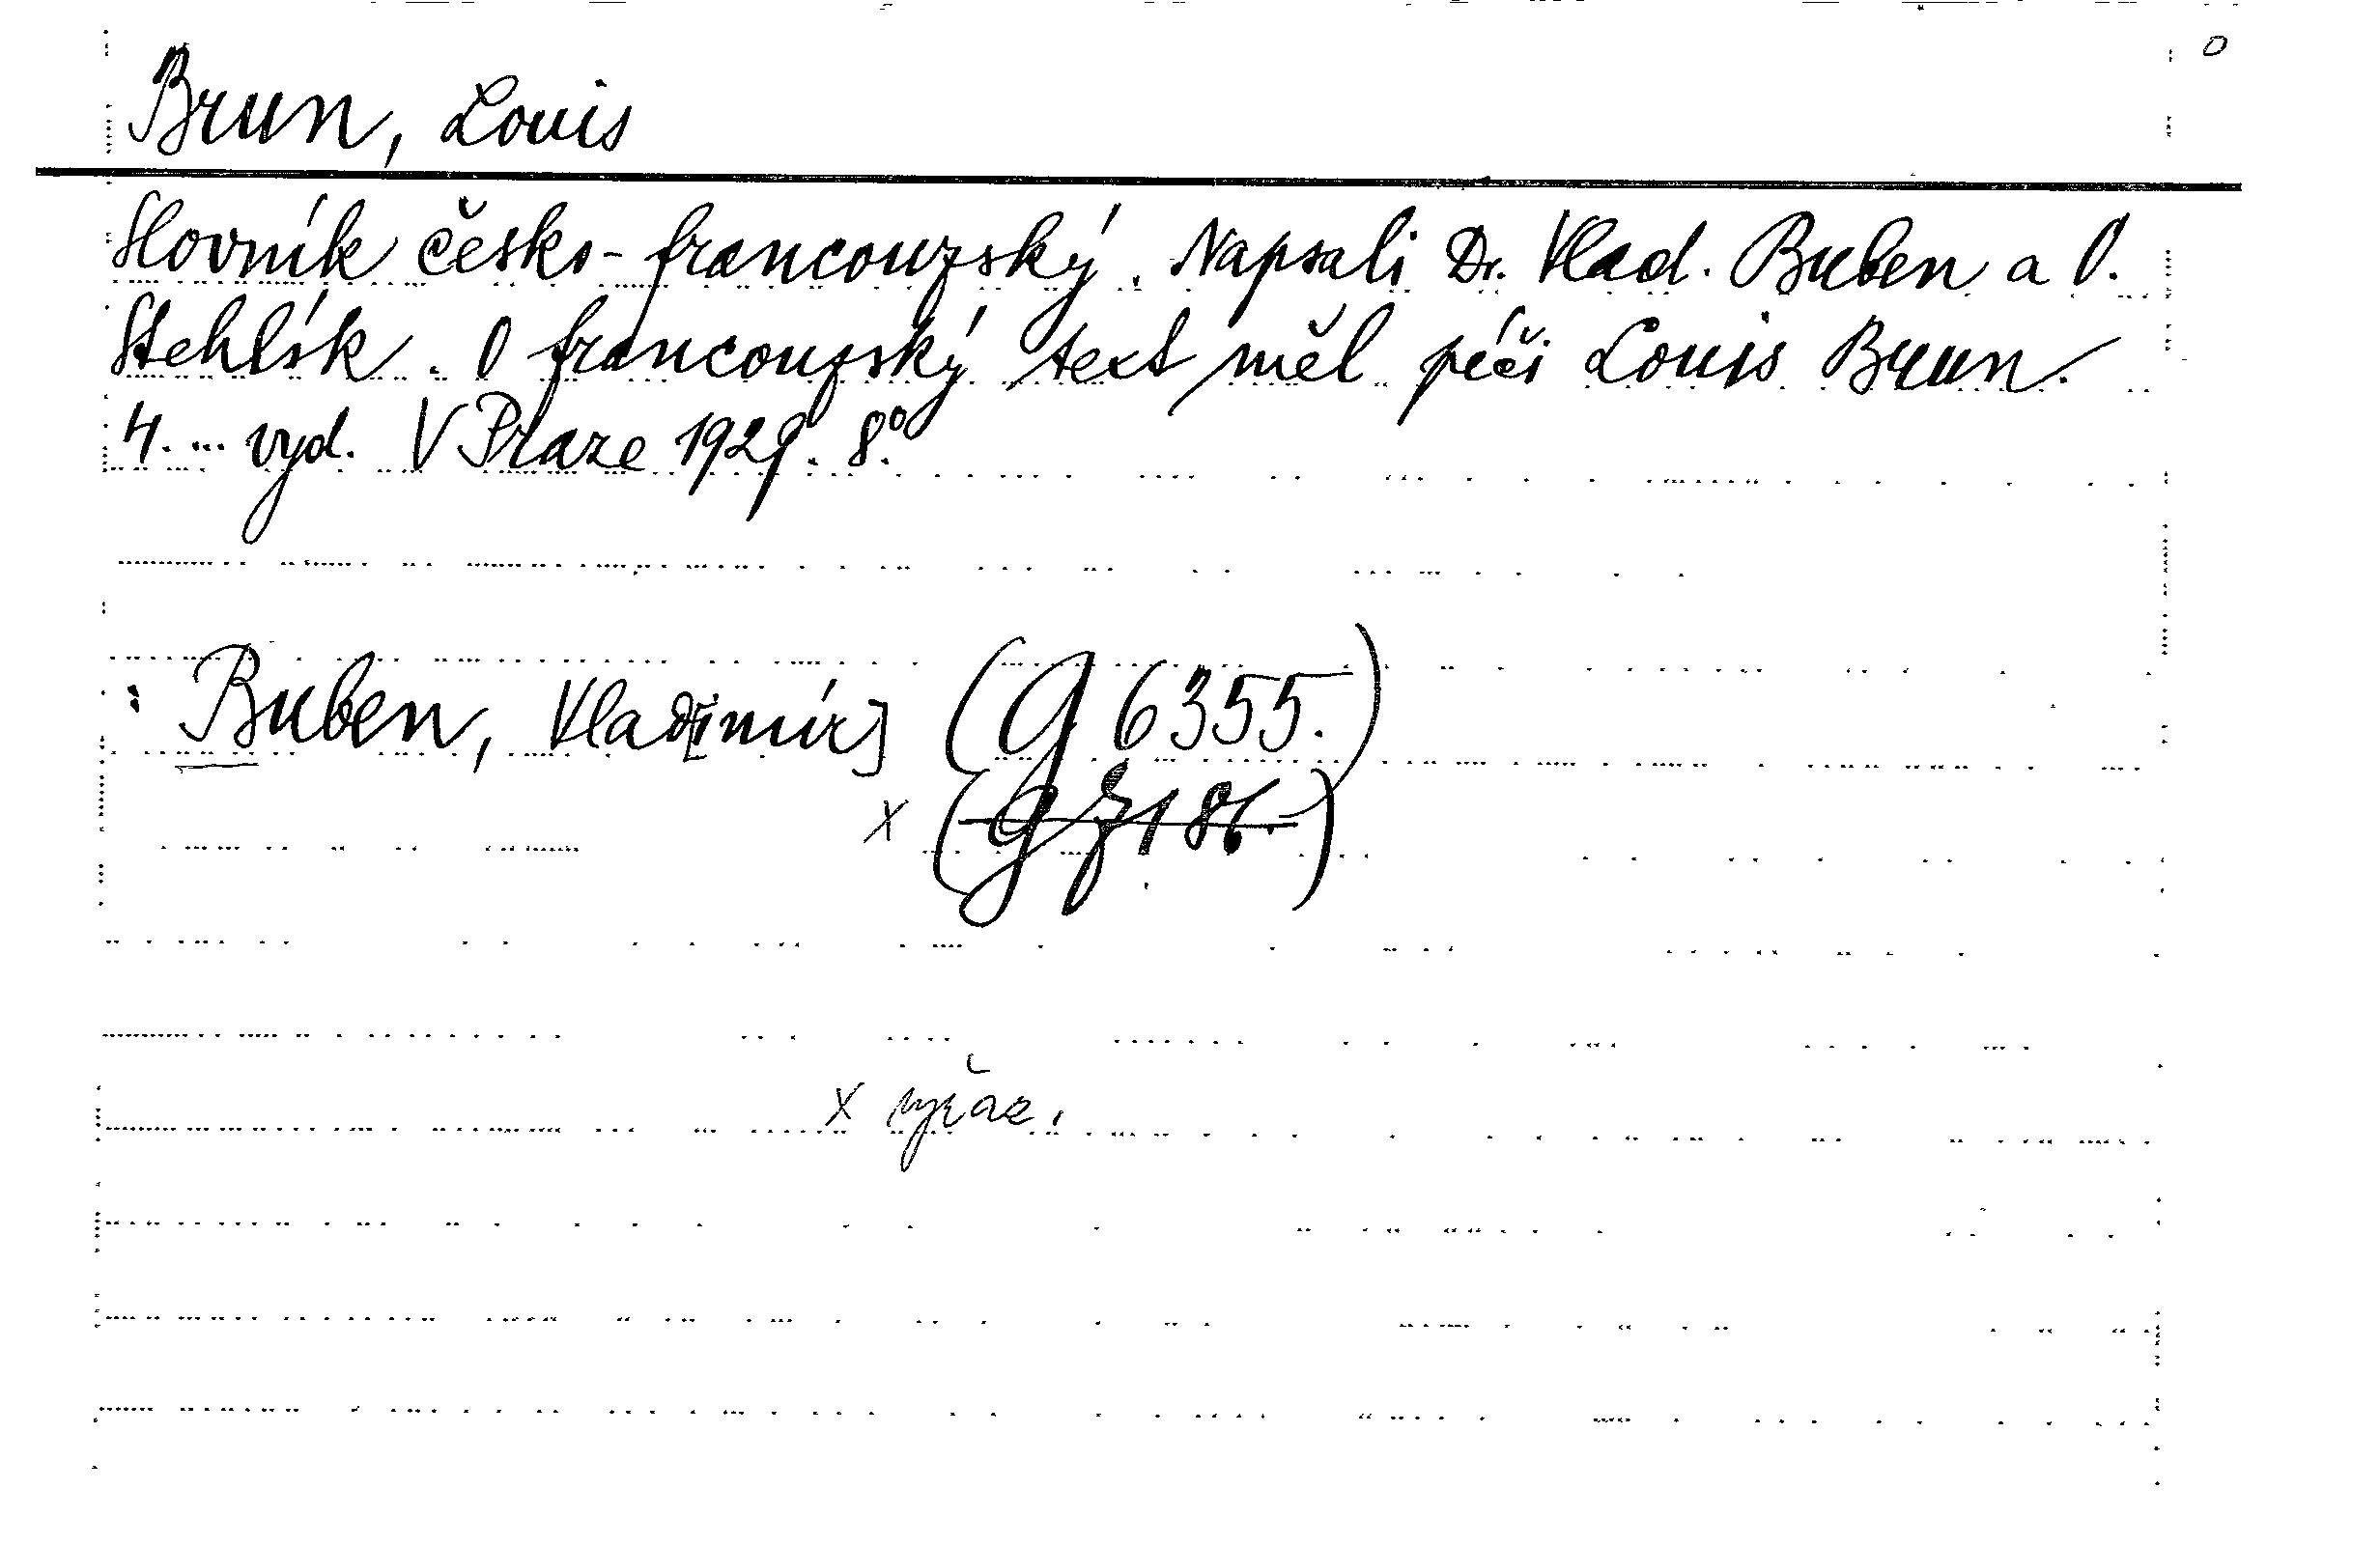 O
Brun, Louis
Slovník česko-francouzský. Napsali Dr. Vlad. Buben a O.
Stehlík. O francouzský text měl péči Louis Brun.
4. ... vyd. V Praze 1929. 8°.
: Buben, Vlad[imír] (G 6355.)
x (G 7186.)
x vyřaz.